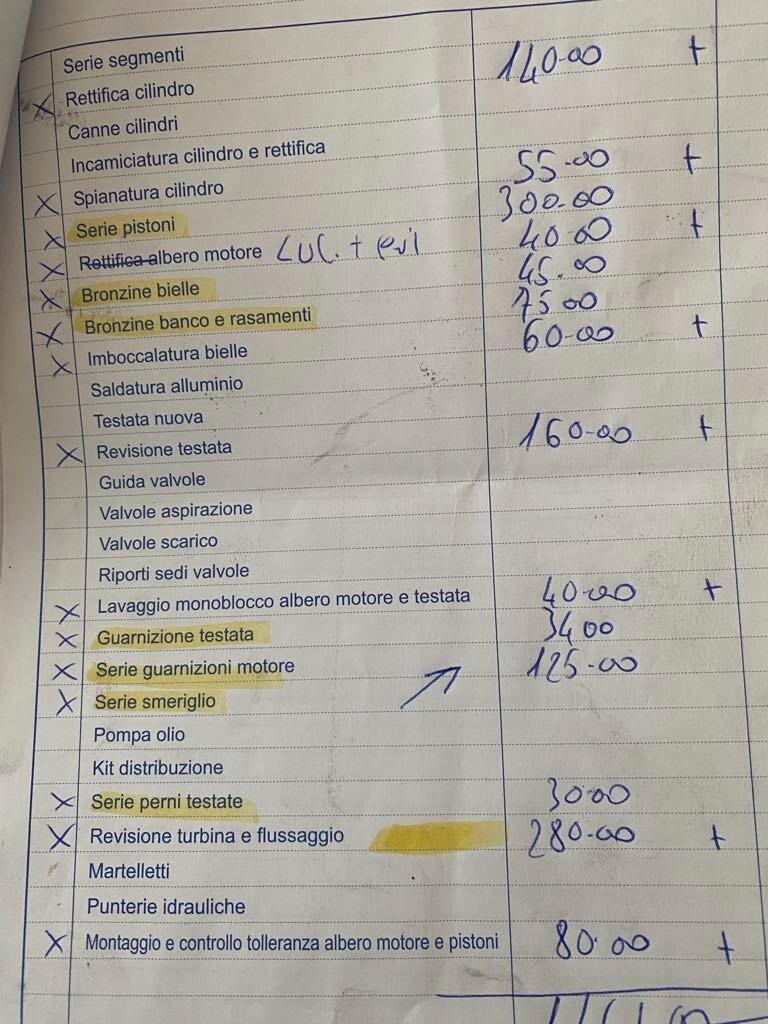 Serie segmenti
X Rettifica cilindro 140.00 +
Canne cilindri
Incamiciatura cilindro e rettifica
X Spianatura cilindro 55.00 +
X Serie pistoni 300.00
X Rettifica albero motore LUC. + 40.00 +
X Bronzine bielle 45.00
X Bronzine banco e rasamenti 75 00
X Imboccalatura bielle 60.00 +
Saldatura alluminio
Testata nuova
X Revisione testata 160.00 +
Guida valvole
Valvole aspirazione
Valvole scarico
Riporti sedi valvole
X Lavaggio monoblocco albero motore e testata 40.00 +
X Guarnizione testata 34 00
X Serie guarnizioni motore 125.00
X Serie smeriglio
Pompa olio
Kit distribuzione
X Serie perni testate 30.00
X Revisione turbina e flussaggio 280.00 +
Martelletti
Punterie idrauliche
X Montaggio e controllo tolleranza albero motore e pistoni 80.00 +